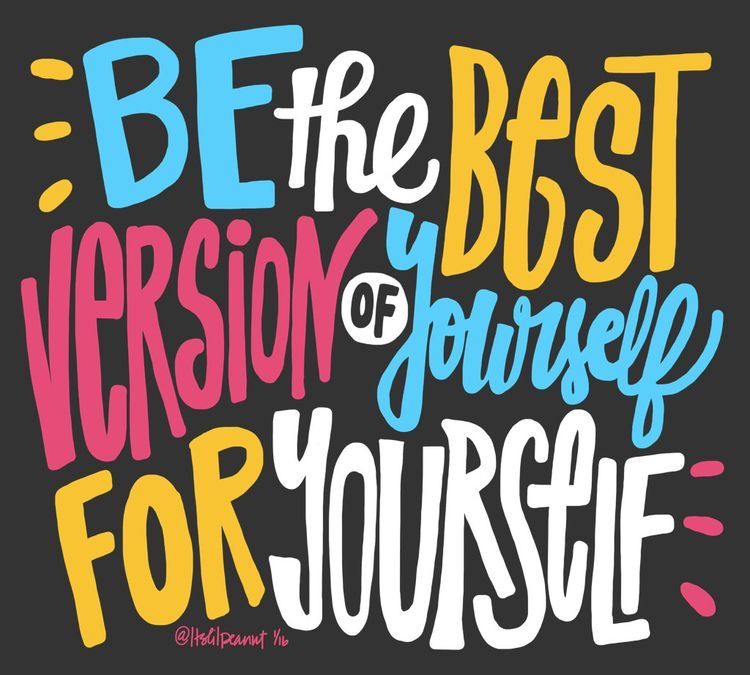 BE the BEST
VERSION OF yourself
FOR YOURSELF
@ItsLilpeanut 1/16